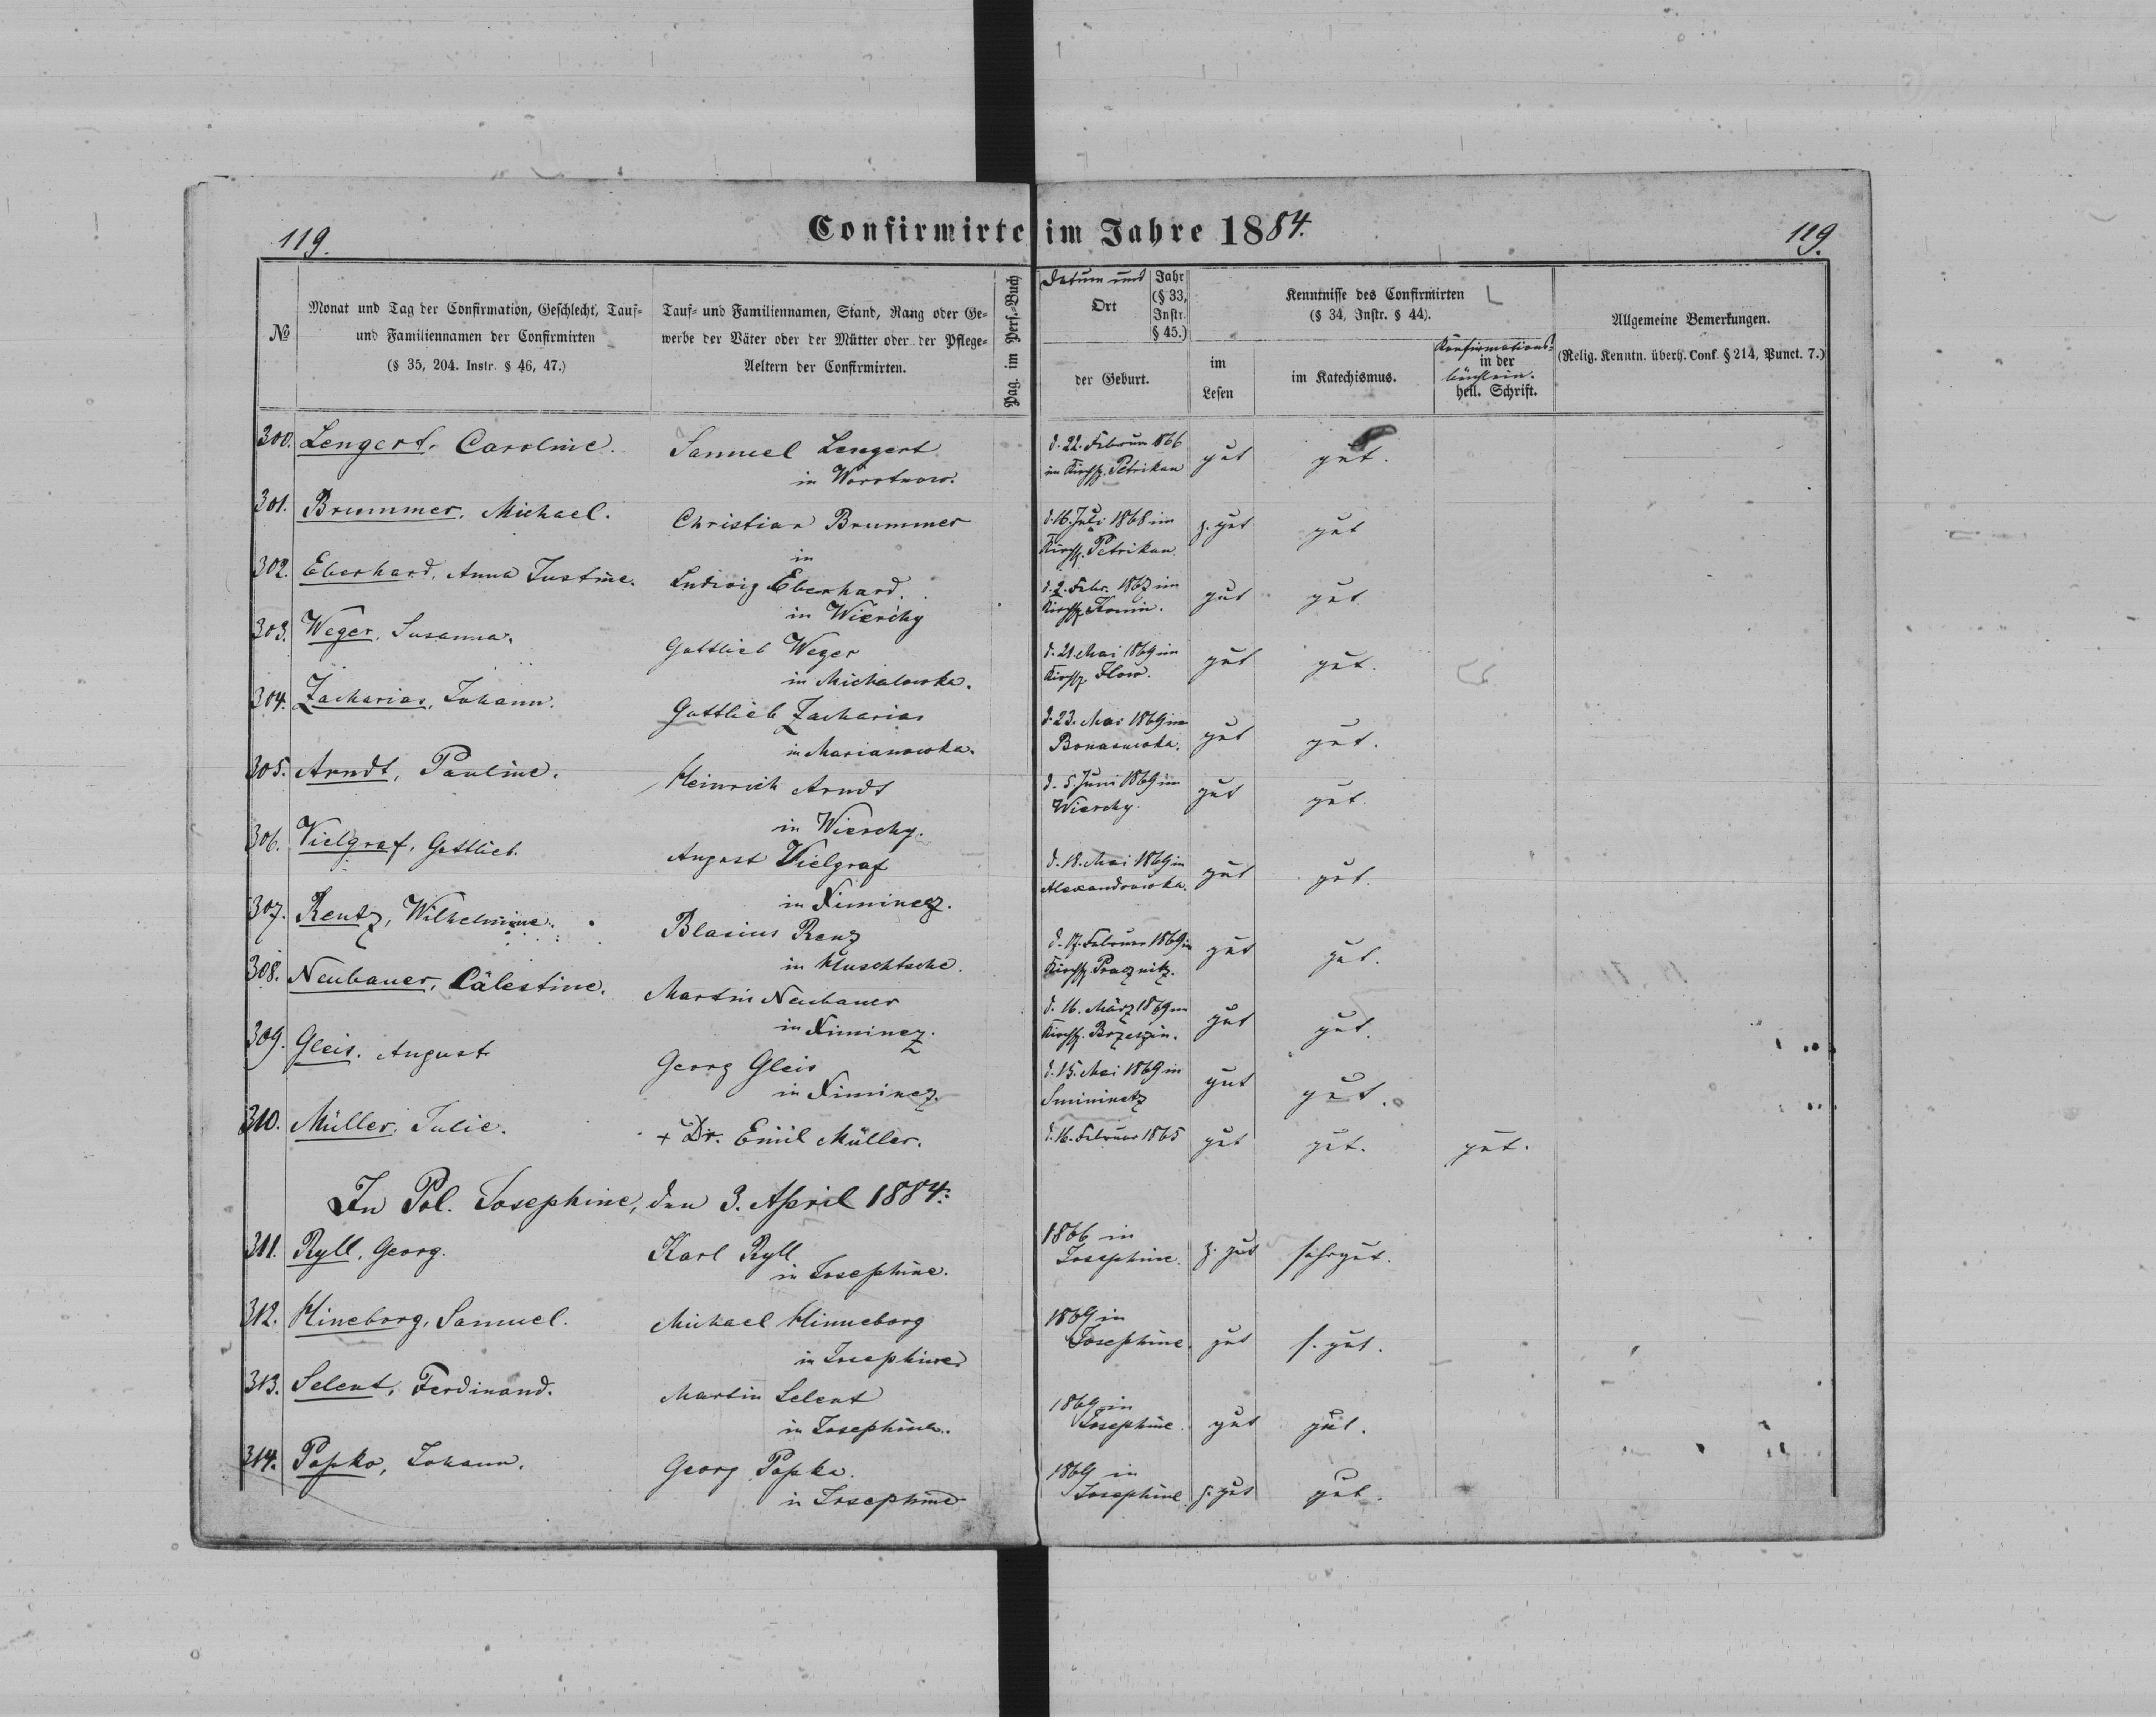 119.
Confirmirte im Jahre 1884.
119.
№
Monat und Tag der Confirmation, Geschlecht, Tauf-
und Familiennamen der Confirmirten
(§ 35, 204. Instr. § 46, 47.)
Tauf- und Familiennamen, Stand, Rang oder Ge-
werbe der Väter oder der Mütter oder der Pflege-
Aeltern der Confirmirten.
Pag. im Pers.-Buch
Datum und
Ort
Jahr
(§ 33,
Instr.
§ 45.)
der Geburt.
Kenntnisse des Confirmirten
(§ 34, Instr. § 44).
im
Lesen
im Katechismus.
Konfirmations-
in der
büchlein.
heil. Schrift.
Allgemeine Bemerkungen.
(Relig. Kenntn. überh. Conf. § 214, Punct. 7.)
300. Lengert, Caroline. Samuel Lengert d. 22. Februar 1866 gut gut.
in Worotnow. im Kirchsp. Petrikau
301. Brummer, Michael. Christian Brummer d. 16. Juli 1868 im z. gut gut
in Kirchsp. Petrikau
302. Eberhard, Anna Justine. Ludwig Eberhard. d. 2. Febr. 1867 im gut gut
in Wierchy Kirchsp. Konin.
303. Weger, Susanna. Gottlieb Weger d. 21. Mai 1869 im gut gut.
in Michalowka. Kirchsp. Ilow.
304. Zacharias, Johann. Gottlieb Zacharias d. 23. Mai 1869 in gut gut.
in Marianowka.
305. Arndt, Pauline. Heinrich Arndt d. 5. Juni 1869 in gut gut.
in Wierchy. Wierchy.
306. Vielgraf, Gottlieb. August Vielgraf d. 18. Mai 1869 in gut gut.
in Ximinez. Alexandrowka.
307. Rentz, Wilhelmine. Blasius Renz d. 17. Februar 1869 im gut gut.
in Kluschtsche. Kirchsp. Praeznitz.
308. Neubauer, Cälestine. Martin Neubauer d. 16. März 1869 im gut gut.
in Ximinez. Kirchsp. Brzeszin.
309. Gleis. August Georg Gleis d. 15. Mai 1869 in gut gut.
in Ximinez. Smininetz
310. Müller, Julie. + Dr. Emil Müller. d. 16. Februar 1865 gut gut. gut.
In Pol. Josephine, den 3. April 1884:
311. Ryll, Georg. Karl Ryll 1866 in z. gut sehr gut.
in Josephine. Josephine.
312. Hineborg, Samuel. Michael Hinneborg 1869 in gut s. gut.
in Josephine Josephine.
313. Selent, Ferdinand. Martin Selent 1869 in gut gut.
in Josephine. Josephine.
314. Papko, Johann. Georg Papko. 1869 in z. gut gut.
in Josephine Josephine